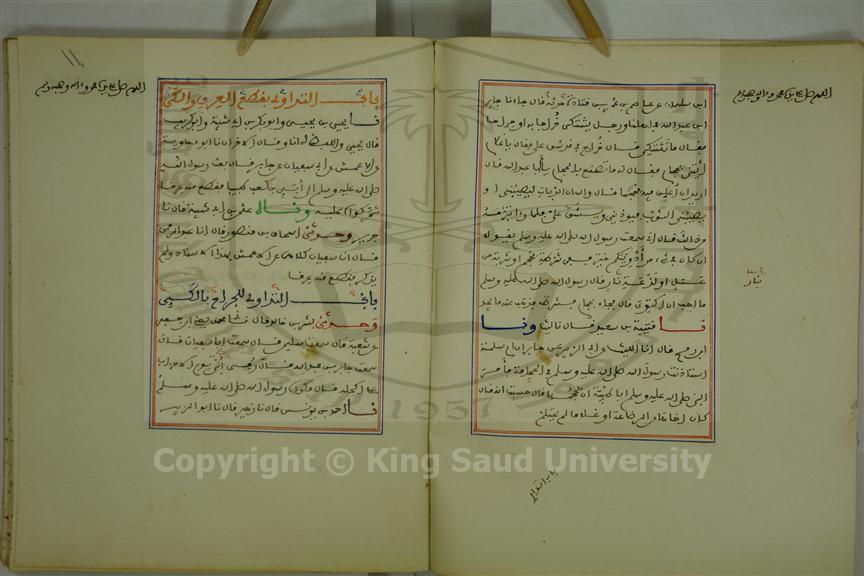 ابن سليمان عن عاصم بن عمر بن قتادة قال جاءنا جابر
ابن عبد الله في اهلنا ورجل يشتكي خراجا به او جراحا
فقال ما تشتكي قال خراج بي قد شق علي فقال يا غلام
ايتني بحجام فقال له ما تصنع بالحجام يا ابا عبد الله قال
اريد ان اعلق فيه محجما قال والله ان الذباب ليصيبني او
يصيبني الثوب فيوذيني ويشق علي فلما راى تبرمه
من ذلك قال اني سمعت رسول الله صلى الله عليه وسلم يقول
ان كان في شيء من ادويتكم خير ففي شرطة محجم او شربة من
عسل او لذعة بنار قال رسول الله صلى الله عليه وسلم
وما احب ان اكتوي قال فجاء بحجام فشرطه فذهب عنه ما يجد
نا قتيبة بن سعيد قال نا ليث ونا
ابن رمح قال انا الليث عن ابي الزبير عن جابر ان ام سلمة
استاذنت رسول الله صلى الله عليه وسلم في الحجامة فامر
النبي صلى الله عليه وسلم ابا طيبة ان يحجمها قال حسبت انه قال
كان اخاها من الرضاعة او غلاما لم يحتلم
بنار
باب التداوي
١١
باب التداوي بقطع العرق والكي
نا يحيى بن يحيى وابو بكر بن ابي شيبة وابو كريب
قال يحيى واللفظ له انا وقال الاخران نا ابو معاوية
عن الاعمش عن ابي سفيان عن جابر قال بعث رسول الله
صلى الله عليه وسلم الى ابي بن كعب طبيبا فقطع منه عرقا
ثم كواه عليه ونا عثمن بن ابي شيبة قال نا
جرير وحدثني اسحاق بن منصور قال انا عبد الرحمن
قال انا سفيان كلاهما عن الاعمش بهذا الاسناد ولم
يذكر فقطع منه عرقا
باب التداوي للجراح بالكي
وحدثني بشر بن خالد قال نا محمد يعني ابن جعفر
عن شعبة قال سمعت سليمن قال سمعت ابا سفيان قال
سمعت جابر بن عبد الله قال رمي ابي يوم الاحزاب
على اكحله قال فكواه رسول الله صلى الله عليه وسلم
نا احمد بن يونس قال نا زهير قال نا ابو الزبير
Copyright © King Saud University
1957